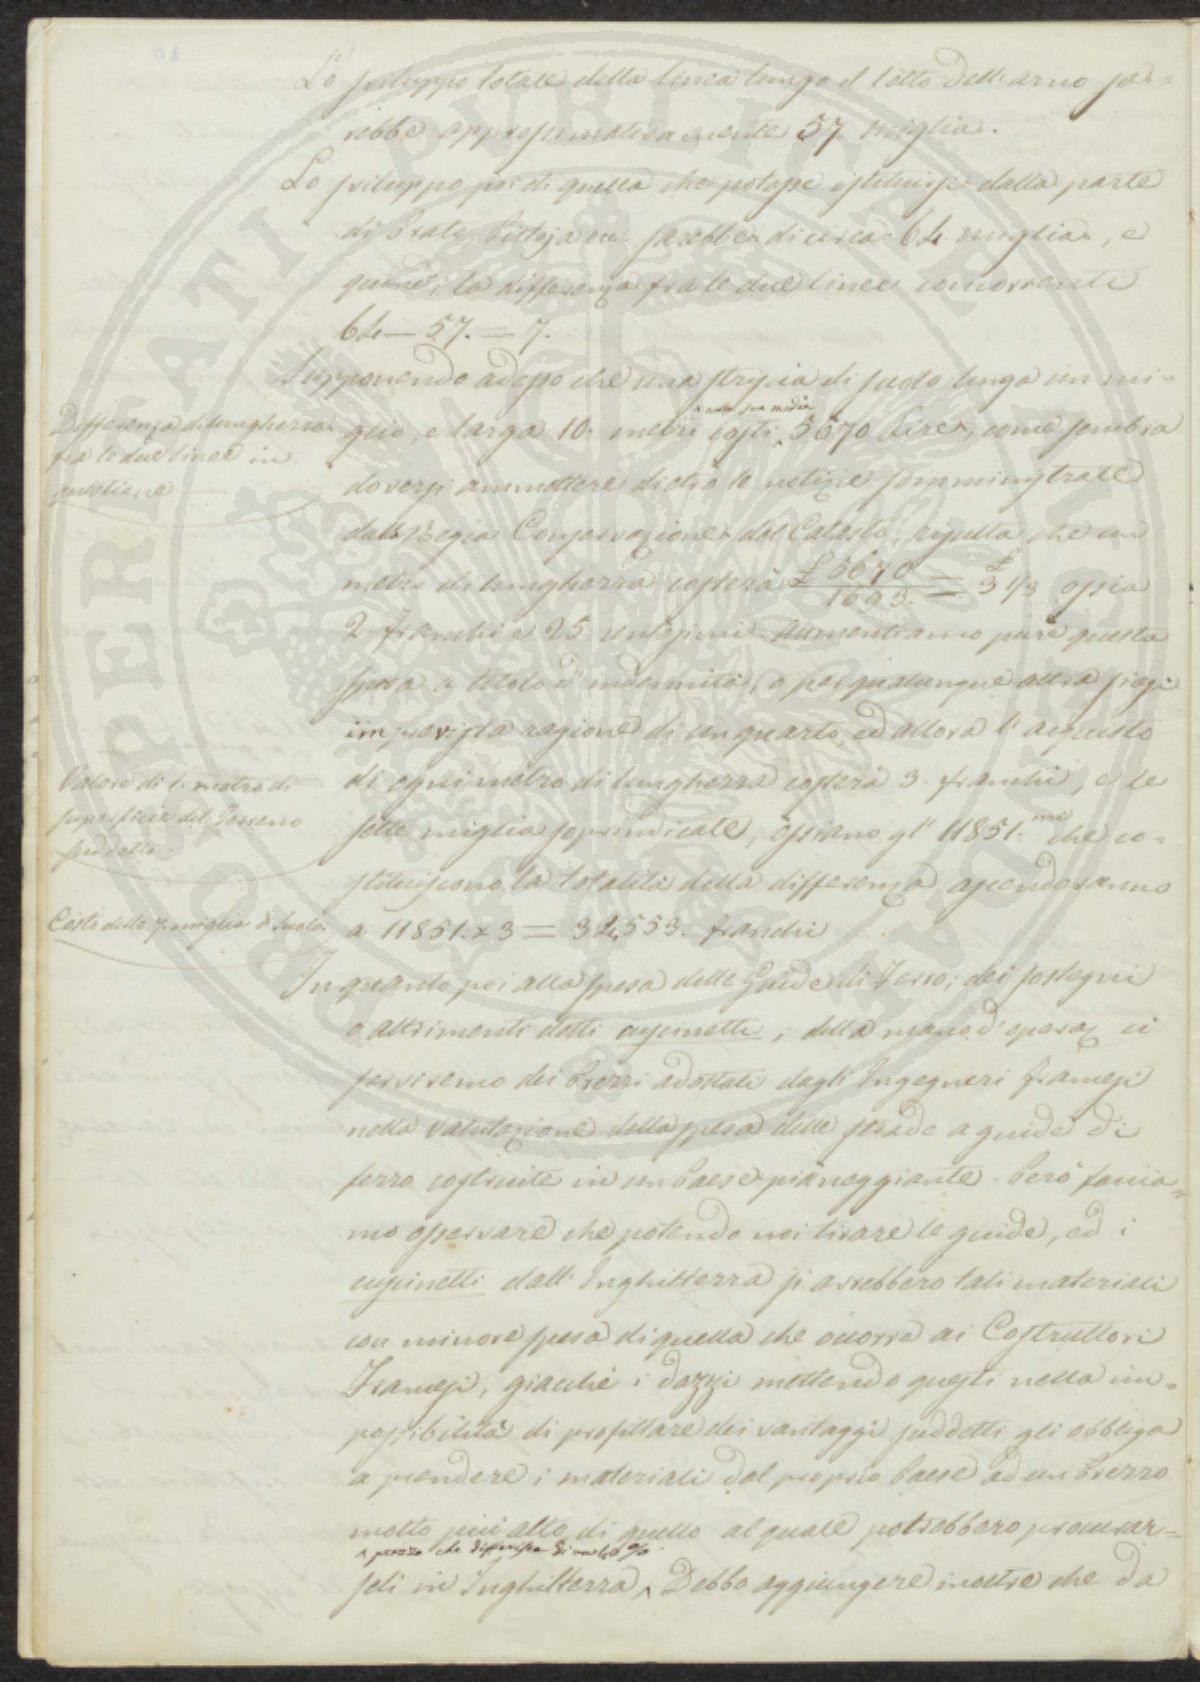 Lo sviluppo totale della linea lungo il letto dell'arno sa=
rebbe approssimativamente 57 miglia.
Lo sviluppo poi di quella che potesse istituirsi dalla parte
di Prato, Pistoja ec. sarebbe di circa 64. miglia, e
quindi la differenza fra le due linee concorrenti
64 — 57. = 7.
Supponendo adesso che una striscia di suolo lunga un mi=
glio, e larga 10. metri costi 5670 Lire, come sembra
^ nella sua media
doversi ammettere dietro le notizie somministrate
dalla Regia Conservazione del Catasto; risulta che un
metro di lunghezza costerà £ 5670 / 1693. = £ 3 1/3 ossia
2. franchi e 25 centesimi. Aumentiamo pure questa
spesa a titolo d'indennità, o per qualunque altra siasi
imprevista ragione di un quarto, ed allora l'acquisto
di ogni metro di lunghezza costerà 3. franchi, e le
sette miglia soprindicate, ossiano gl' 11851. mi che co=
stituiscono la totalità della differenza ascenderanno
a 11851. x 3 = 34,553. franchi
In quanto poi alla spesa delle Guide di Ferro, dei sostegni
o altrimenti detti cuscinetti, della mano d'opera, ci
serviremo dei Prezzi adottati dagli Ingegneri francesi
nella valutazione della spesa delle strade a guide di
ferro costruite in un Paese pianeggiante. Però faccia=
mo osservare che potendo noi tirare le guide, ed i
cuscinetti dall'Inghilterra si avrebbero tali materiali
con minore spesa di quella che occorre ai Costruttori
Francesi, giacchè i dazzi mettendo questi nella im=
possibilità di profittare dei vantaggi suddetti gli obbliga
a prendere i materiali del proprio Paese ad un Prezzo
molto più alto di quello al quale potrebbero procurar=
^ prezzo che differisce di
seli in Inghilterra ^ Debbo aggiungere inoltre che da
Differenza di lunghezza
fra le due linee in
questione
Valore di 1. metro di
superficie del Terreno
suddetto.
Costo delle 7. miglia di suolo.
BOPERTATI PUBLICAE